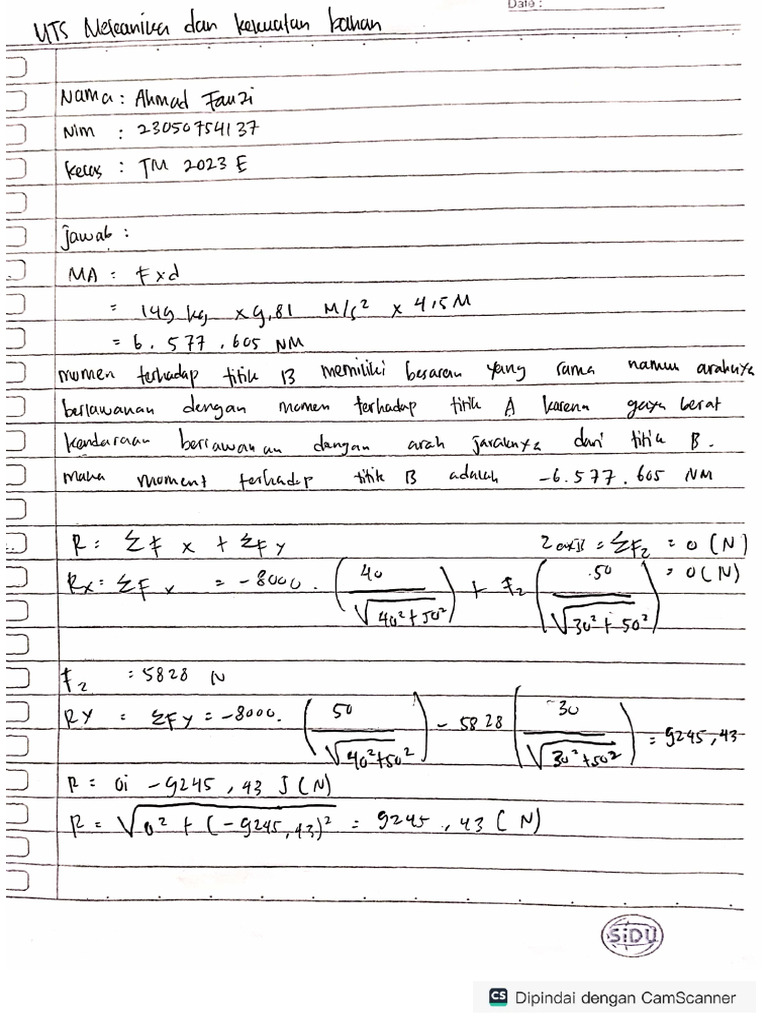 Date :
UTS Mekanika dan kekuatan bahan
Nama : Ahmad Fauzi
Nim : 23050754137
Kelas : TM 2023 E
Jawab :
MA = F x d
= 149 kg x 9,81 M/s² x 4,5 M
= 6.577,605 NM
momen terhadap titik B memiliki besaran yang sama namun arahnya
berlawanan dengan momen terhadap titik A karena gaya berat
kendaraan berlawanan dengan arah jaraknya dari titik B.
maka moment terhadap titik B adalah -6.577.605 NM
R = ΣF x + ΣF y
Z axis = ΣFz = 0 (N)
Rx = ΣF x = -8000 . (40/√(40²+50²)) + F2 (50/√(30²+50²)) = 0 (N)
F2 = 5828 N
RY = ΣFy = -8000. (50/√(40²+50²)) - 5828 (30/√(30²+50²)) = 9245,43
R = 0i - 9245,43 J (N)
R = √(0² + (-9245,43)²) = 9245,43 (N)
SiDU
CS Dipindai dengan CamScanner